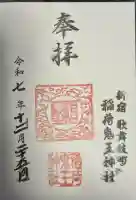 奉拝
新宿 歌舞伎町
稲荷鬼王神社
令和七年十二月二十五日